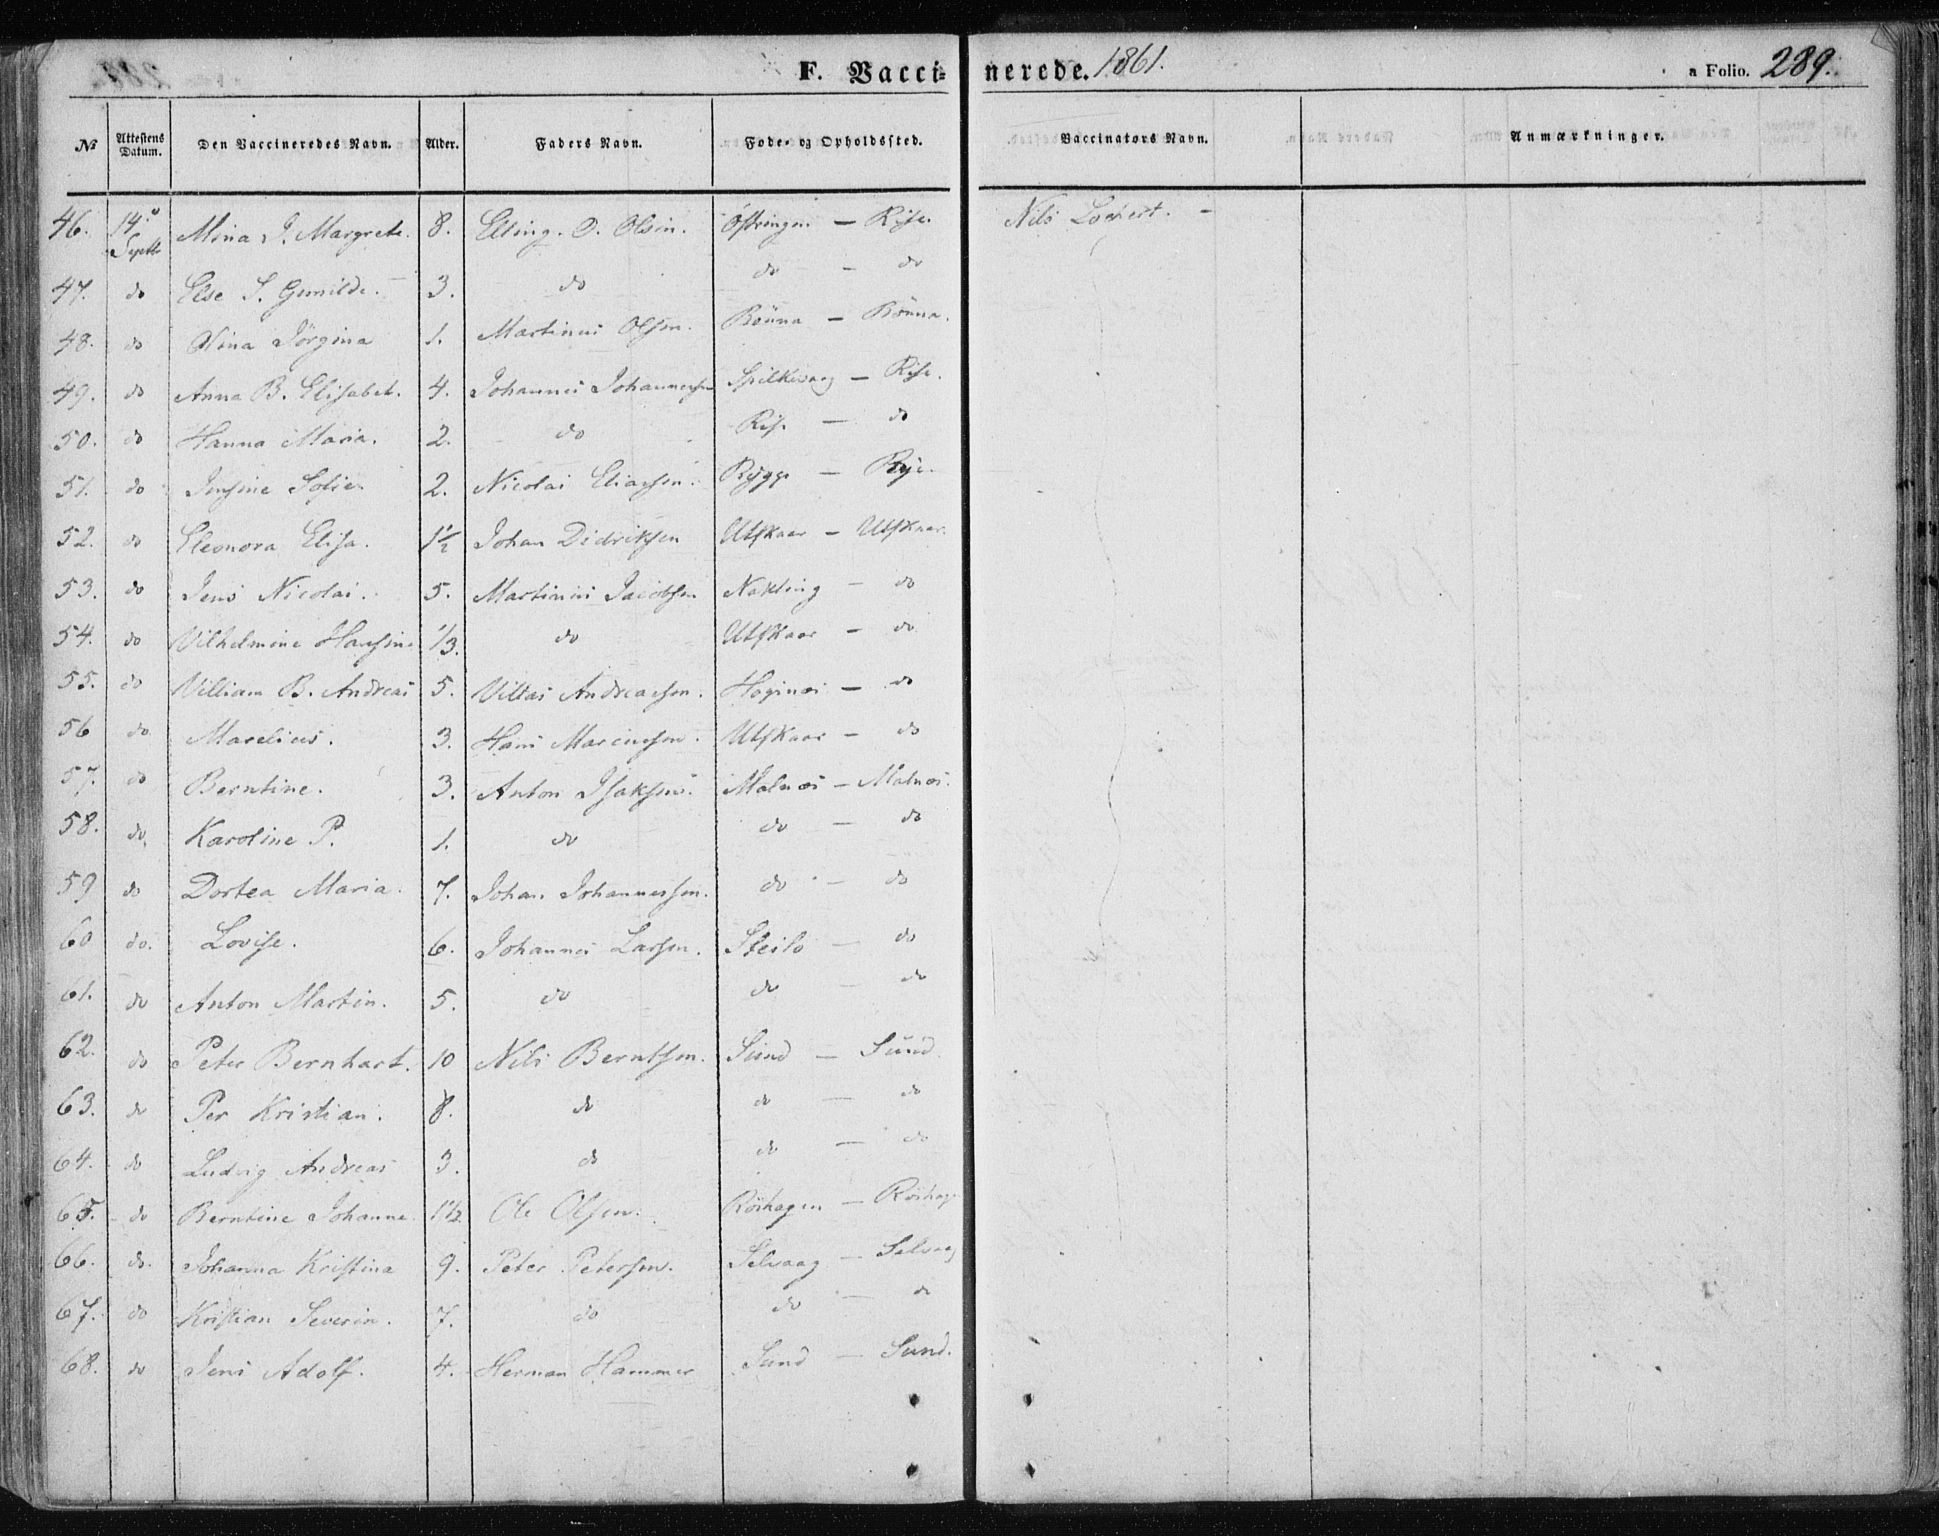 F. Vaccinerede. 1861.
a Folio. 289.
№ Attestens Datum. Den Vaccineredes Navn. Alder. Faders Navn. Føde- og Opholdssted. Vaccinators Navn. Anmærkninger.
46. 14de Septb Mina J. Margrete. 8. Elling. O. Olsen. Östringen — Rise. Nils Lockert. -
47. do Else S. Gunilde. 3. do do — do
48. do Olina Jörgina 1. Martinus Olsen. Rönna — Rönna.
49. do Anna B. Elisabet. 4. Johannes Johannessen Spilkevaag — Rise.
50. do Hanna Maria. 2. do Rise — do
51. do Jensine Sofie. 2. Nicolai Eliassen. Rygge — Rye.
52. do Eleonora Elisa. 1½ Johan Didriksen Utskaar — Utskaar.
53. do Jens Nicolai. 5. Martinus Jacobsen Nakling — do
54. do Vilhelmine Hansine 1/3. do Utskaar — do
55. do Villiam B. Andreas 5. Villas Andreassen. Høgnæs — do
56 do Marelius. 3. Hans Marcussen. Utskaar — do
57. do Berntine. 3. Anton Isaksen. Malnæs — Malnæs.
58. do. Karoline P. 1. do do — do
59 do Dortea Maria. 7. Johan Johannessen. do — do
60 do. Lovise. 6. Johannes Larsen. Steilo — do
61. do Anton Martin. 5. do do — do
62. do Peter Bernhart. 10 Nils Berntsen. Sund — Sund.
63. do Per Kristian. 8. do do — do
64. do Ludvig Andreas 3. do do — do
65. do Berntine Johanne. 1½ Ole Olsen. Röshagen — Röshag
66. do. Johanna Kristina 9. Peter Petersen. Selvaag — Selvaag
67. do Kristian Severin. 7. do do — do
68. do Jens Adolf. 4. Herman Hammer Sund — Sund.